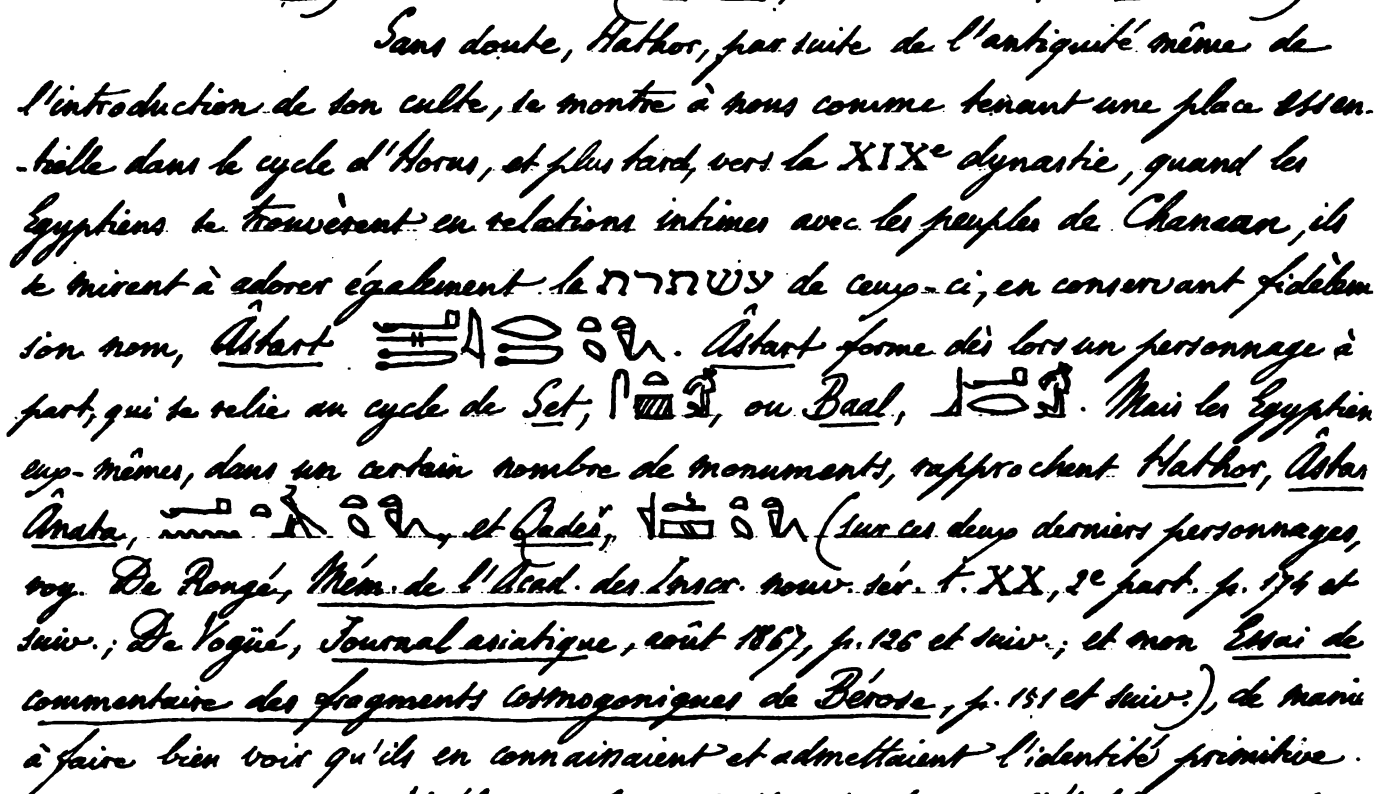 Sans doute, Hathor, par suite de l'antiquité même de
l'introduction de son culte, se montre à nous comme tenant une place essen-
-tielle dans le cycle d'Horus, et plus tard, vers la XIXe dynastie, quand les
Egyptiens se trouvèrent en relations intimes avec les peuples de Chanaan, ils
se mirent à adorer également la עשתרת de ceux-ci, en conservant fidèlem
son nom, Âstart . Âstart forme dès lors un personnage à
part, qui se relie au cycle de Set, , ou Baal, . Mais les Egyptien
eux-mêmes, dans un certain nombre de monuments, rapprochent Hathor, Âstar
Ânata, , et Qadeš, (sur ces deux derniers personnages,
voy. De Rougé, Mém. de l'Acad. des Inscr. nouv. sér. t. XX, 2e part. p. 174 et
suiv.; De Vogüé, Journal asiatique, août 1867, p. 126 et suiv.; et mon Essai de
commentaire des fragments cosmogoniques de Bérose, p. 151 et suiv.), de maniè
à faire bien voir qu'ils en connaissaient et admettaient l'identité primitive.